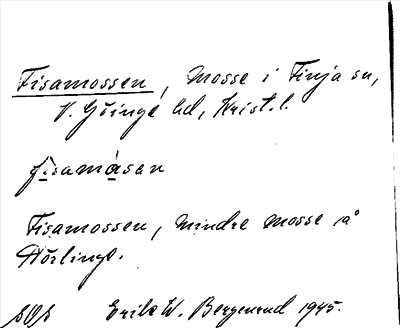 Fisamossen, Mosse i Finja sn,
V. Göinge hd, Krist. l.
fisamåsan
Fisamossen, mindre mosse på
Hörlinge.
Erik W. Bergenrud 1945.